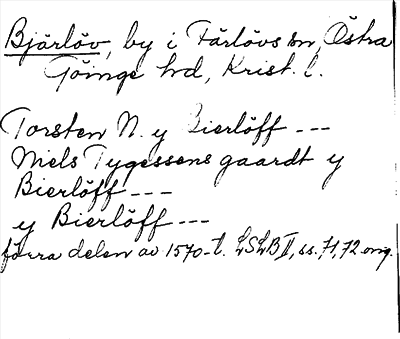 Bjärlöv, by i Färlövs sn, Östra
Göinge hd, Krist. l.
Torsten N. y Bierlöff ---
Niels Tygessens gaardt y
Bierlöff ---
y Bierlöff ---
förra delen av 1570-t. LSLB II, ss. 71, 72 omg.